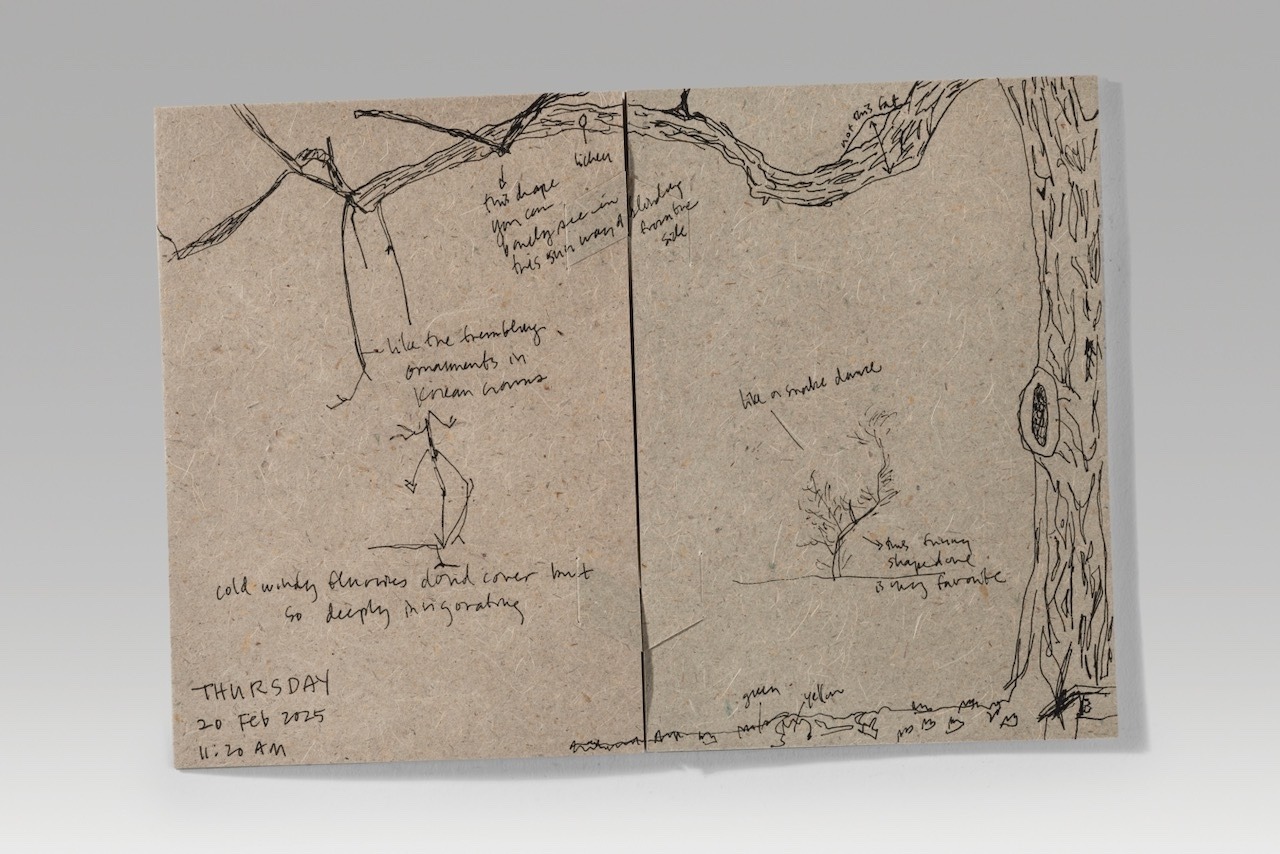 lichen
this shape
you can
only see in
this sun way & standing
from the
side
not this fat
like the trembling
ornaments in
Korean crowns
like a snake dance
this funny
shaped one
is my favorite
cold windy flurries cloud cover but
so deeply invigorating
THURSDAY
20 Feb 2025
11:20 AM
green
yellow